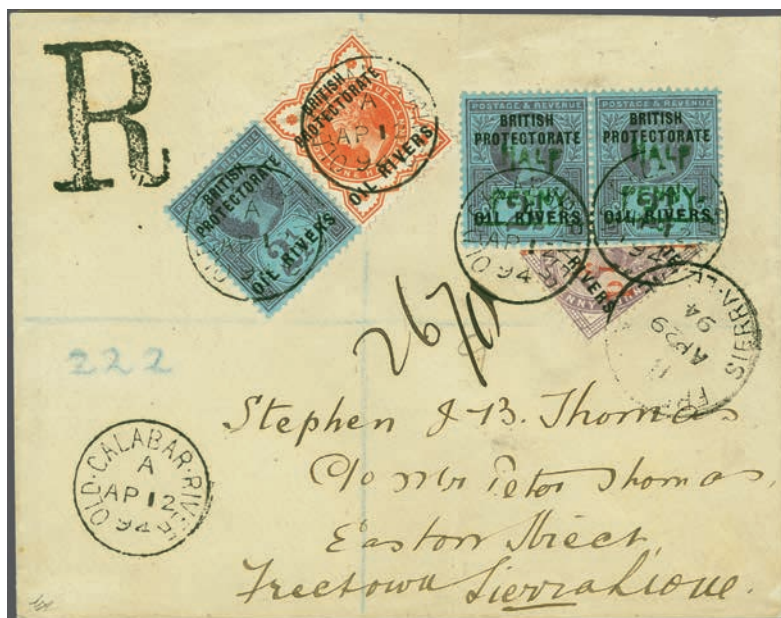 R
BRITISH
PROTECTORATE
OIL RIVERS
BRITISH
PROTECTORATE
OIL RIVERS
2½
POSTAGE & REVENUE
BRITISH
PROTECTORATE
HALF
PENNY
OIL RIVERS
POSTAGE & REVENUE
BRITISH
PROTECTORATE
HALF
PENNY.
OIL RIVERS
RIVERS
AP 12
94
SIERRA·LE
AP 29
94
222
OLD·CALABAR·RIVER
A
AP 12
94
Stephen J. B. Thomas
C/o Mr Peter Thomas,
Easton Street,
Freetown Sierra Leone.